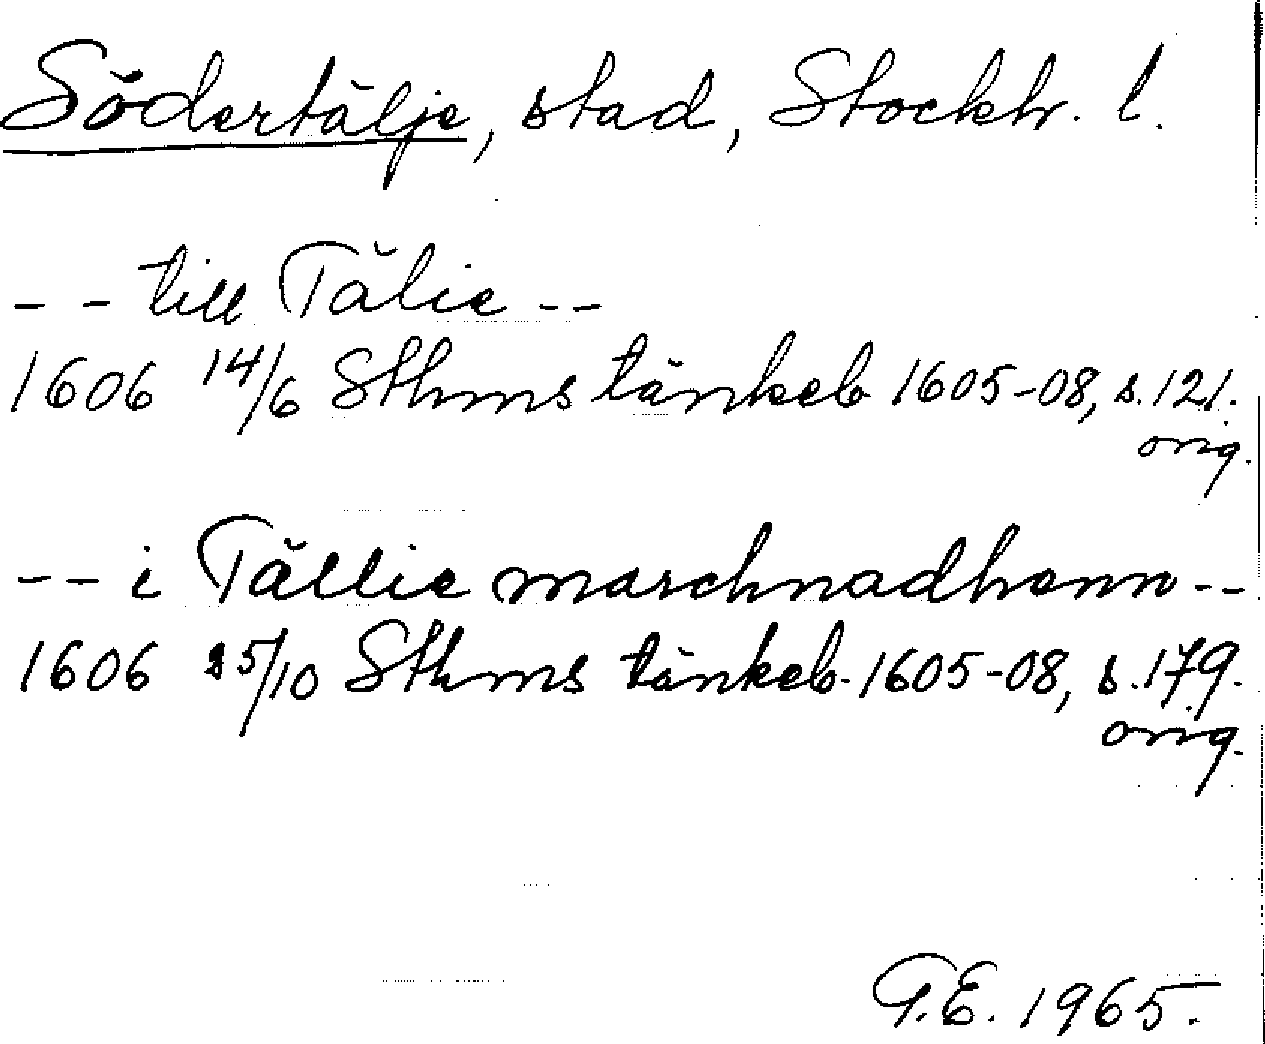 Södertälje, stad, Stockh. l.
- - till Tälie - -
1606 14/6 Sthms tänkeb 1605-08, s. 121.
orig.
- - i Tällie marchnadhenn - -
1606 25/10 Sthms tänkeb. 1605-08, s. 179.
orig.
G.E. 1965.